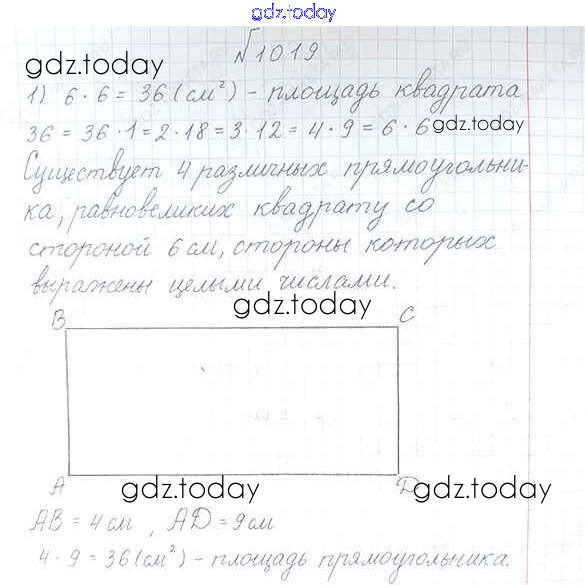 gdz.today
№1019
gdz.today
1) 6 · 6 = 36 (см²) - площадь квадрата
36 = 36 · 1 = 2 · 18 = 3 · 12 = 4 · 9 = 6 · 6 gdz.today
Существует 4 различных прямоугольни-
ка, равновеликих квадрату со
стороной 6 см, стороны которых
выражены целыми числами.
gdz.today
B C
A D
gdz.today gdz.today
AB = 4 см , AD = 9 см
4 · 9 = 36 (см²) - площадь прямоугольника.